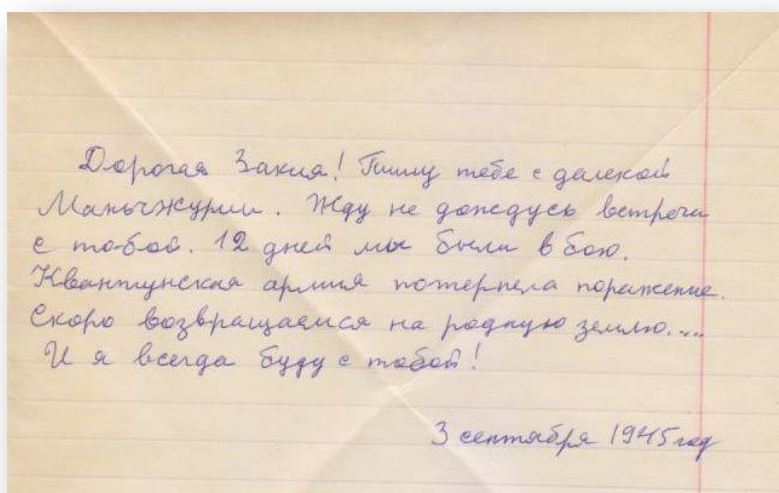 Дорогая Закия! Пишу тебе с далекой
Маньчжурии. Жду не дождусь встречи
с тобой. 12 дней мы были в бою.
Квантунская армия потерпела поражение.
Скоро возвращаемся на родную землю....
И я всегда буду с тобой!
3 сентября 1945 год